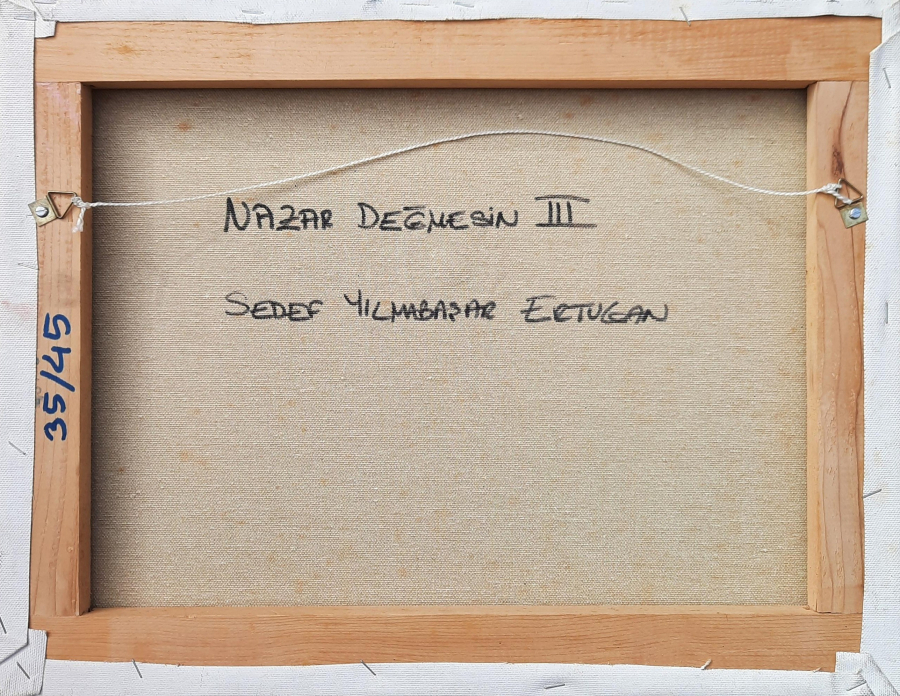 NAZAR DEĞMESİN III
SEDEF YILMABAŞAR ERTUGAN
35/45